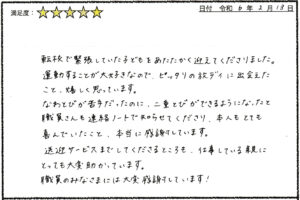 満足度：★★★★★
日付 令和6年2月18日
転校で緊張していた子どもをあたたかく迎えてくださりました。
運動することが大好きなので、ピッタリの放デイに出会えた
こと、嬉しく思っています。
なわとびが苦手だったのに、二重とびができるようになったと
職員さんも連絡ノートで知らせてくださり、本人もとても
喜んでいたこと、本当に感謝しています。
送迎サービスまでしてくださるところも、仕事している親に
とっても大変助かっています。
職員のみなさまには大変感謝しています！